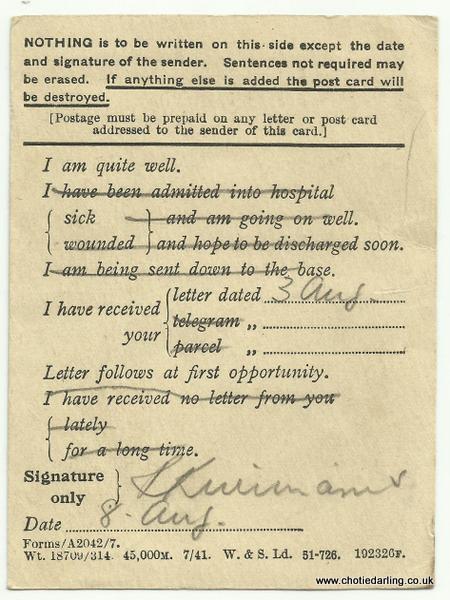 NOTHING is to be written on this side except the date
and signature of the sender. Sentences not required may
be erased. If anything else is added the post card will
be destroyed.
[Postage must be prepaid on any letter or post card
addressed to the sender of this card.]
I am quite well.
I have been admitted into hospital
{ sick } and am going on well.
{ wounded } and hope to be discharged soon.
I am being sent down to the base.
I have received your { letter dated 3 Aug.
telegram „
parcel „
Letter follows at first opportunity.
I have received no letter from you
{ lately
for a long time.
Signature only }
Date 8. Aug.
Forms/A2042/7.
Wt. 18709/314. 45,000M. 7/41. W. & S. Ld. 51-726. 192326F.
www.chotiedarling.co.uk